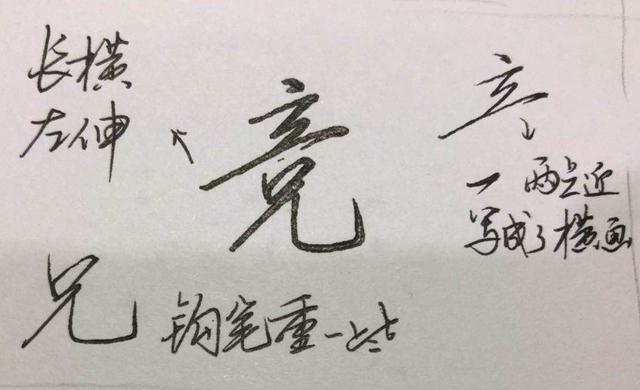 长横
左伸
竞
立
一 两点近
写成了横画
兄
钩笔重一些